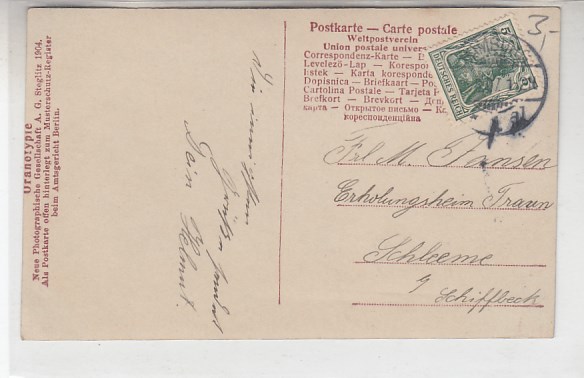 Uranotypie
Neue Photographische Gesellschaft A. G. Steglitz 1904.
Als Postkarte offen hinterlegt zum Musterschutz-Register
beim Amtsgericht Berlin.
Die innigsten
Grüße sendet
Dein Helmut.
Postkarte — Carte postale
Weltpostverein
Union postale univers
Correspondenz-Karte —
Levelező-Lap — Korespon
listek — Karta korespond
Dopisnica — Briefkaart — Po
Cartolina Postale — Tarjeta
Brefkort — Brevkort —
карта — Открытое письмо —
кореспонденційна
DEUTSCHES REICH
5
3,-
Frl. M. Jansen
Erholungsheim Traun
Schleeme
b/
Schiffbeck